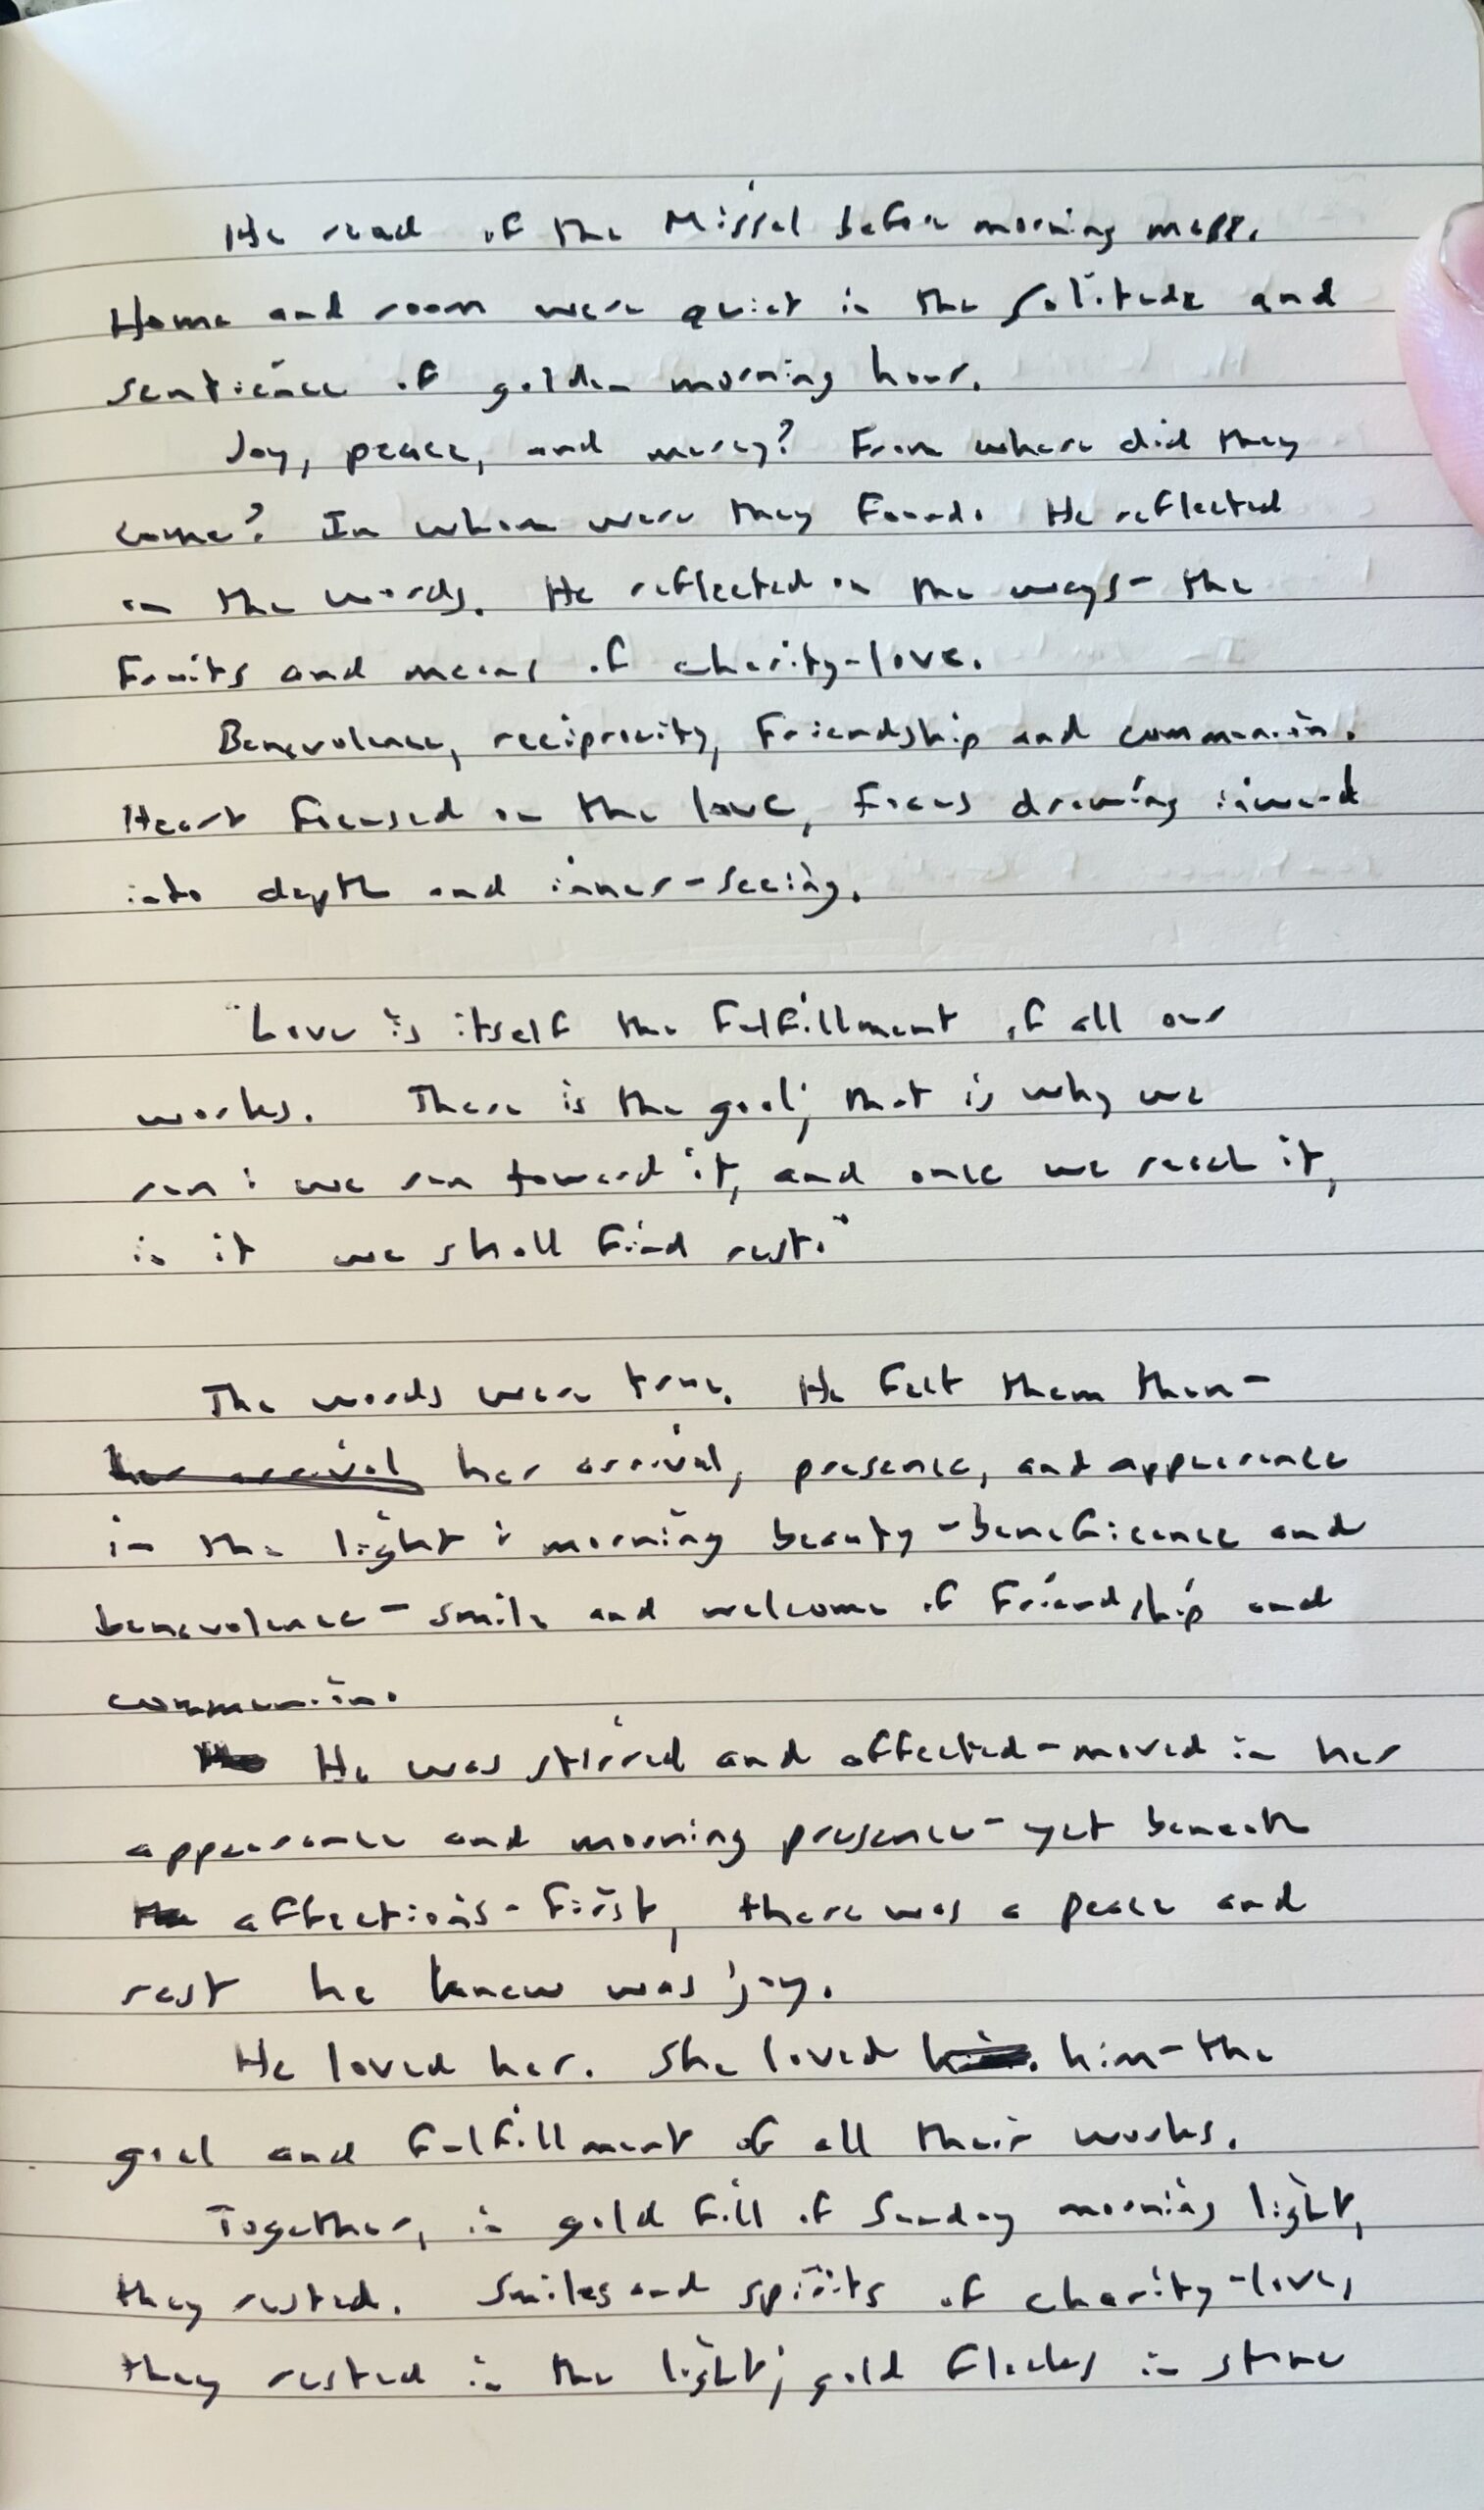 He read of the Missal before morning mass.
Home and room were quiet in the solitude and
sentience of golden morning hour.
Joy, peace, and mercy? From where did they
come? In whom were they found. He reflected
on the words. He reflected on the ways - the
fruits and means of charity-love.
Benevolence, reciprocity, friendship and communion.
Heart focused on the love, focus drawing inward
into depth and inner-seeing.
"Love is itself the fulfillment of all our
works. There is the goal; that is why we
run: we run toward it, and once we reach it,
in it we shall find rest."
The words were true. He felt them then-
her arrival her arrival, presence, and appearance
in the light: morning beauty - beneficence and
benevolence - smile and welcome of friendship and
communion.
He was stirred and affected - moved in her
appearance and morning presence - yet beneath
affections-first, there was a peace and
rest he knew was joy.
He loved her. She loved him - the
goal and fulfillment of all their works.
Together, in gold fill of Sunday morning light,
they rested. Smiles and spirits of charity-love,
they rested in the light; gold flecks in stone